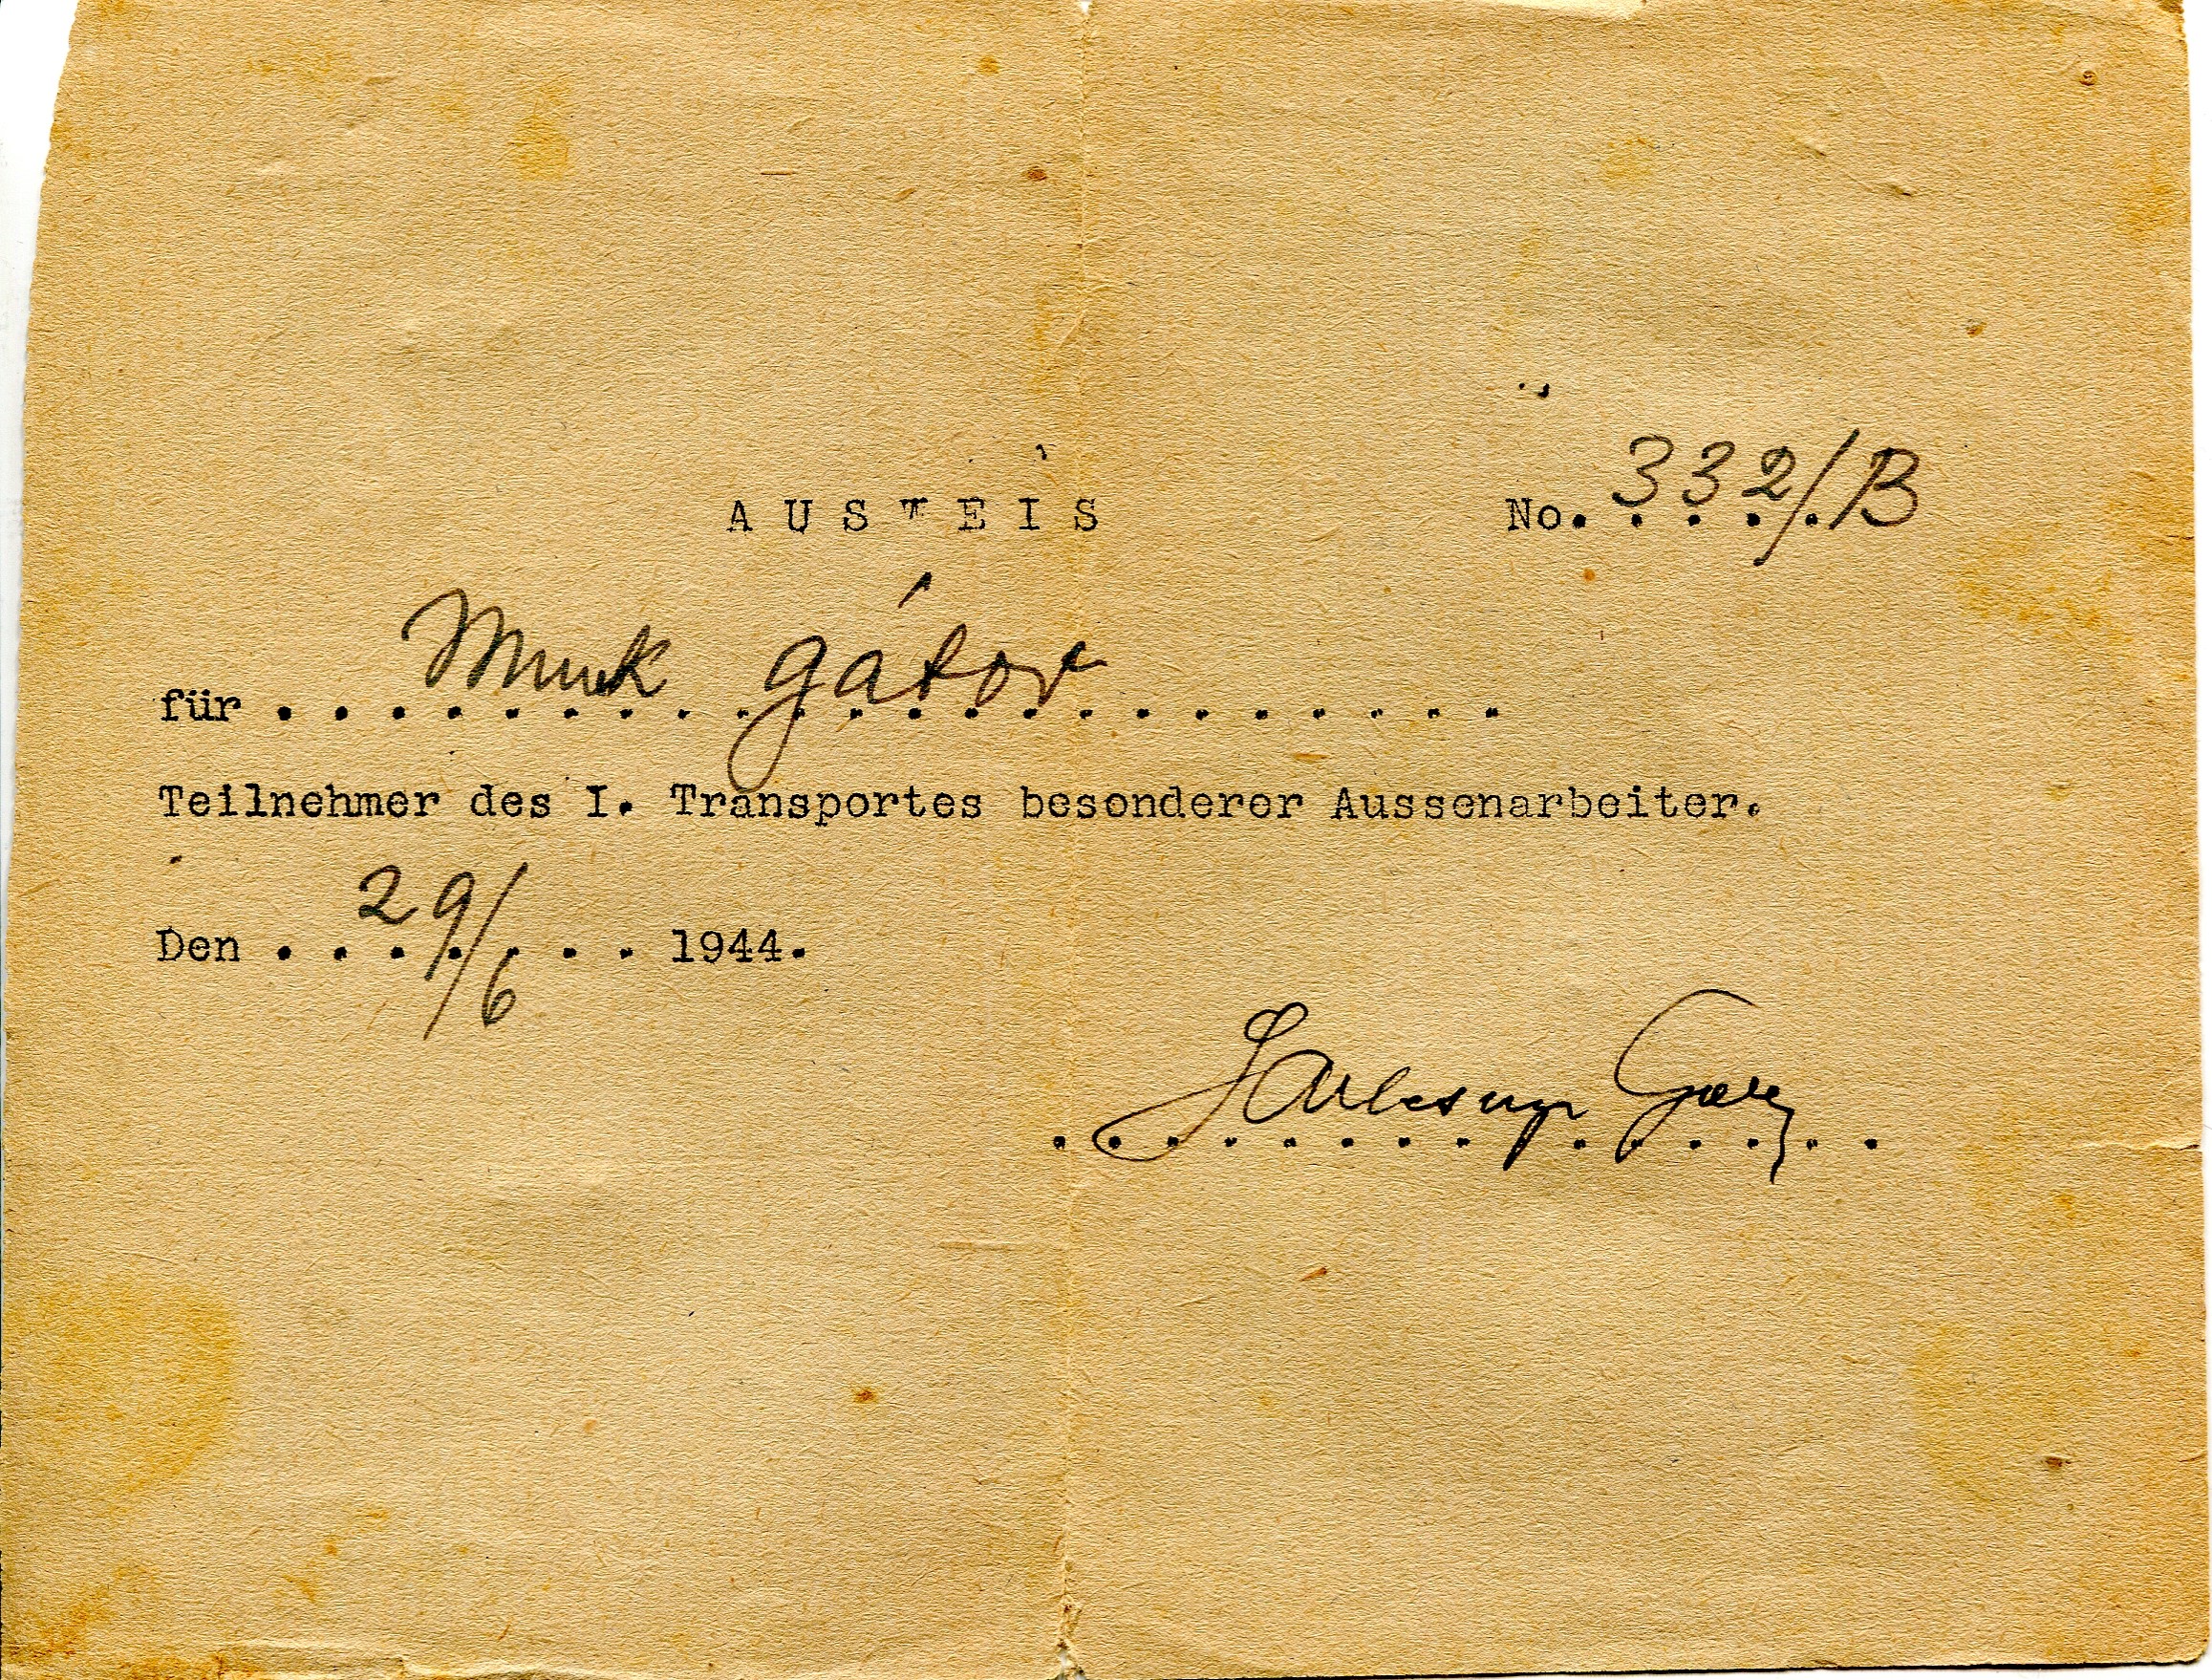 AUSWEIS No. 332/B
für Munk Gábor
Teilnehmer des I. Transportes besonderer Aussenarbeiter.
Den 29/6 1944.